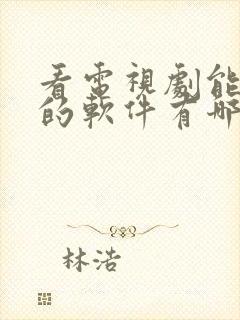 看電視劇能
的軟件有哪
林浩